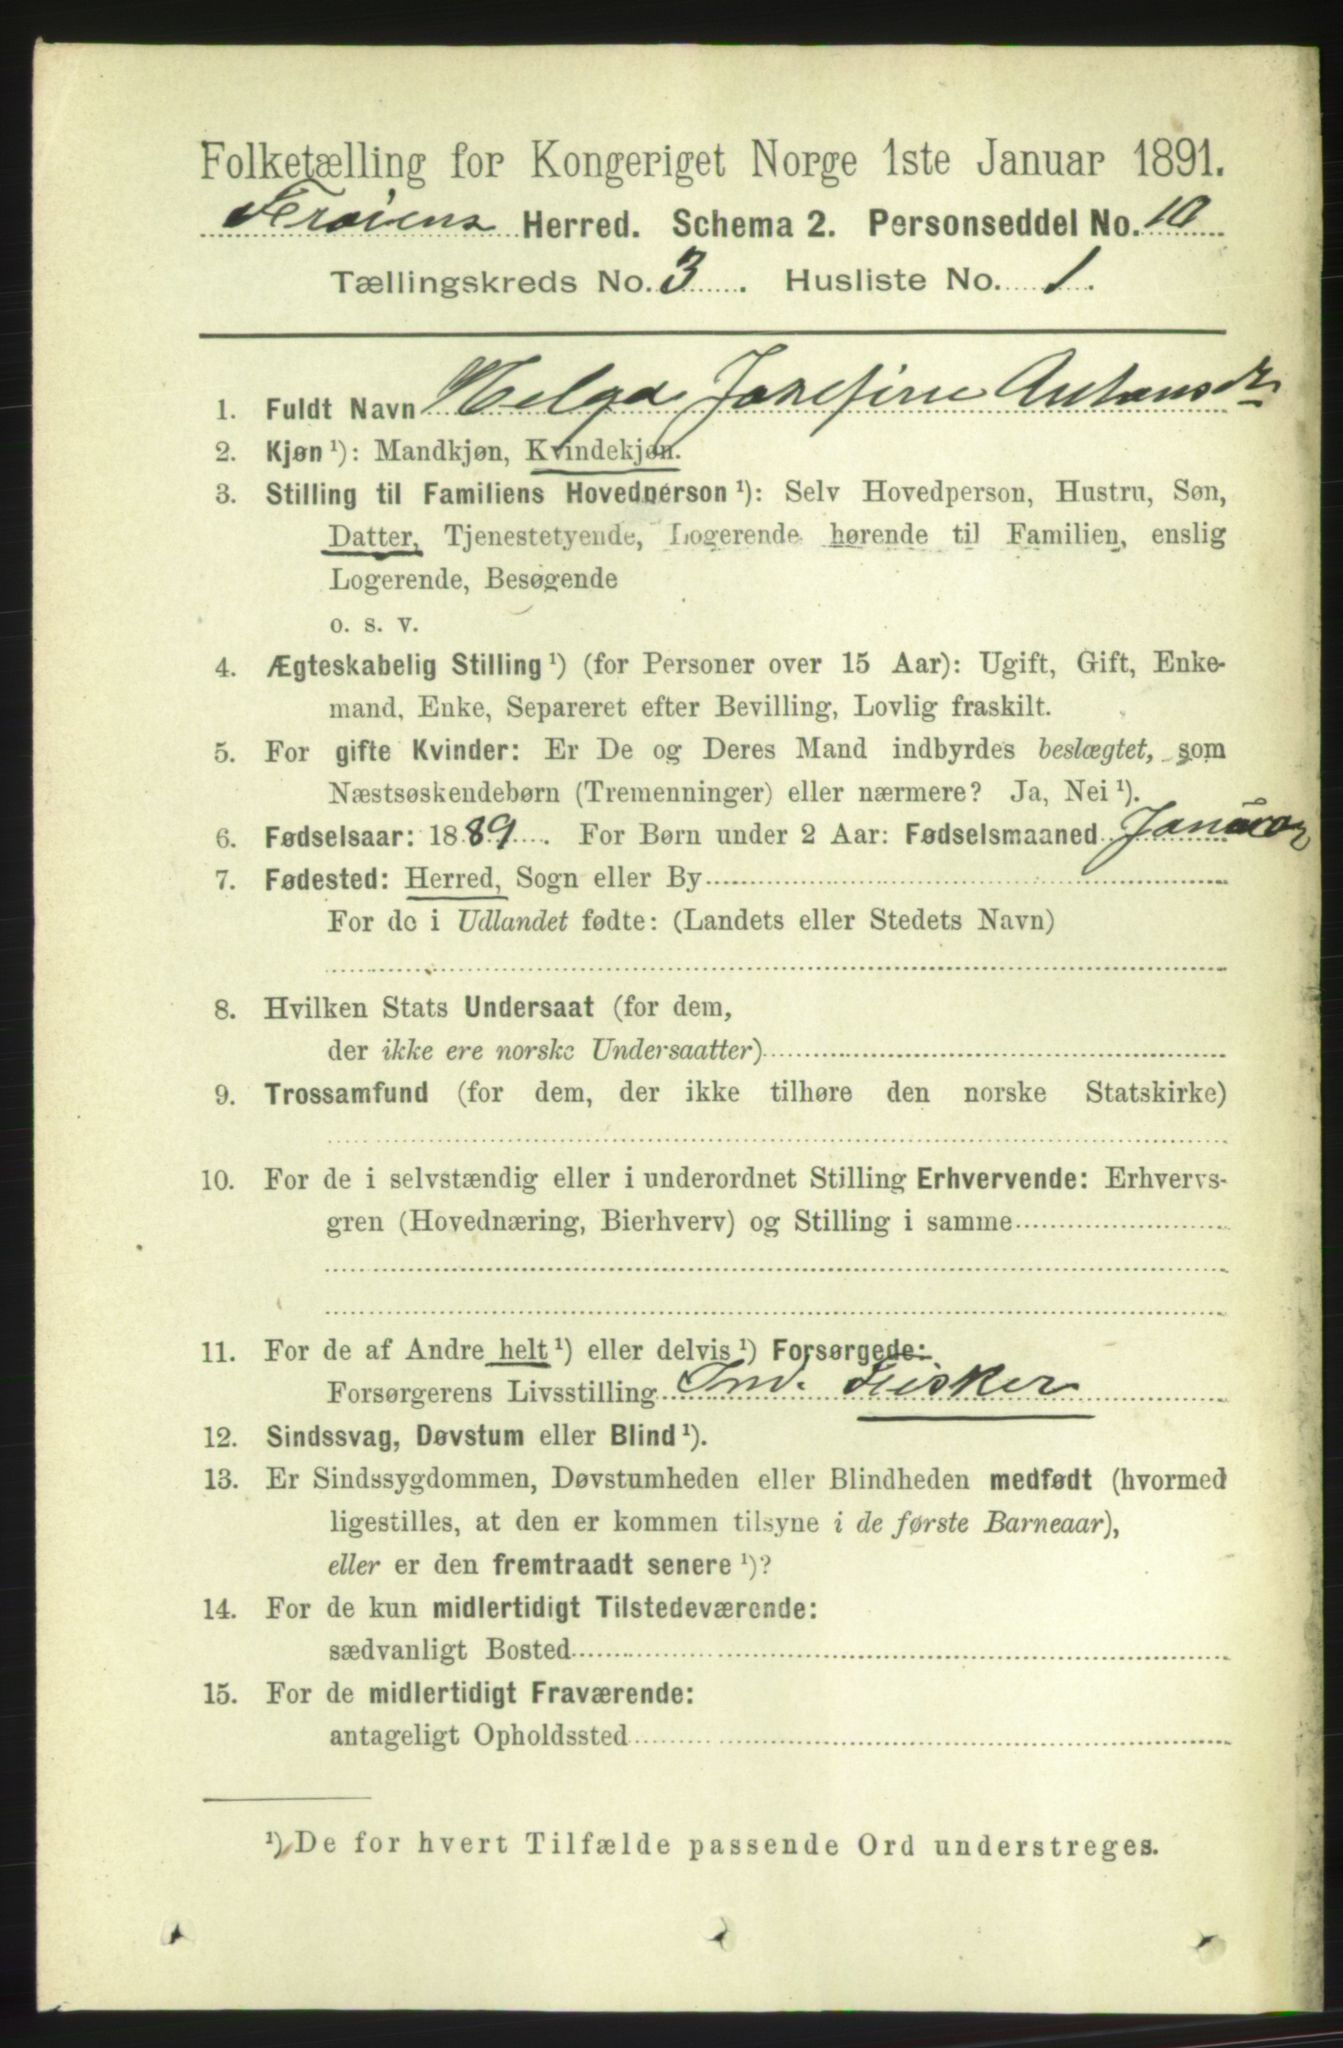 Folketælling for Kongeriget Norge 1ste Januar 1891.
Frøiens Herred. Schema 2. Personseddel No. 10
Tællingskreds No. 3. Husliste No. 1.
1. Fuldt Navn Helga Josefine Antonsdtr
2. Kjøn ¹): Mandkjøn, Kvindekjøn.
3. Stilling til Familiens Hovedperson ¹): Selv Hovedperson, Hustru, Søn,
Datter, Tjenestetyende, Logerende hørende til Familien, enslig
Logerende, Besøgende
o. s. v.
4. Ægteskabelig Stilling ¹) (for Personer over 15 Aar): Ugift, Gift, Enke-
mand, Enke, Separeret efter Bevilling, Lovlig fraskilt.
5. For gifte Kvinder: Er De og Deres Mand indbyrdes beslægtet, som
Næstsøskendebørn (Tremenninger) eller nærmere? Ja, Nei ¹).
6. Fødselsaar: 1889. For Børn under 2 Aar: Fødselsmaaned Januar
7. Fødested: Herred, Sogn eller By
For de i Udlandet fødte: (Landets eller Stedets Navn)
8. Hvilken Stats Undersaat (for dem,
der ikke ere norske Undersaatter)
9. Trossamfund (for dem, der ikke tilhøre den norske Statskirke)
10. For de i selvstændig eller i underordnet Stilling Erhvervende: Erhvervs-
gren (Hovednæring, Bierhverv) og Stilling i samme
11. For de af Andre helt ¹) eller delvis ¹) Forsørgede:
Forsørgerens Livsstilling Ind. Fisker
12. Sindssvag, Døvstum eller Blind ¹).
13. Er Sindssygdommen, Døvstumheden eller Blindheden medfødt (hvormed
ligestilles, at den er kommen tilsyne i de første Barneaar),
eller er den fremtraadt senere ¹)?
14. For de kun midlertidigt Tilstedeværende:
sædvanligt Bosted
15. For de midlertidigt Fraværende:
antageligt Opholdssted
¹) De for hvert Tilfælde passende Ord understreges.